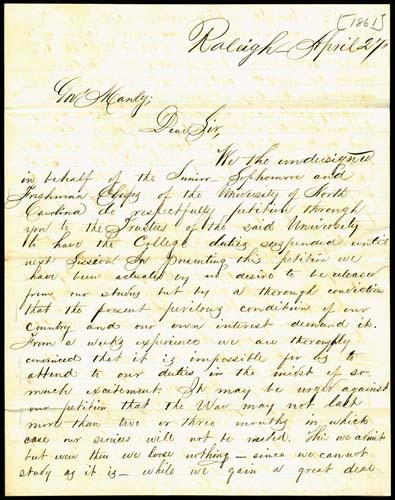 [1861]
Raleigh April 27th
Gov Manly;
Dear Sir,
We the undersigned
in behalf of the Junior Sophomore and
Freshman Classes of the University of North
Carolina do respectfully petition through
you to the Trustees of the said University
to have the College duties suspended until
next Session. In presenting this petition we
have been actuated by no desire to be released
from our studies but by a thorough conviction
that the present perilous condition of our
Country and our own interest demand it.
From a weeks experience we are thoroughly
convinced that it is impossible for us to
attend to our duties in the midst of so
much excitement. It may be urged against
our petition that the War may not last
more than two or three months in which
case our services will not be needed. This we admit
but even then we loose nothing – since we cannot
study as it is – while we gain a great deal